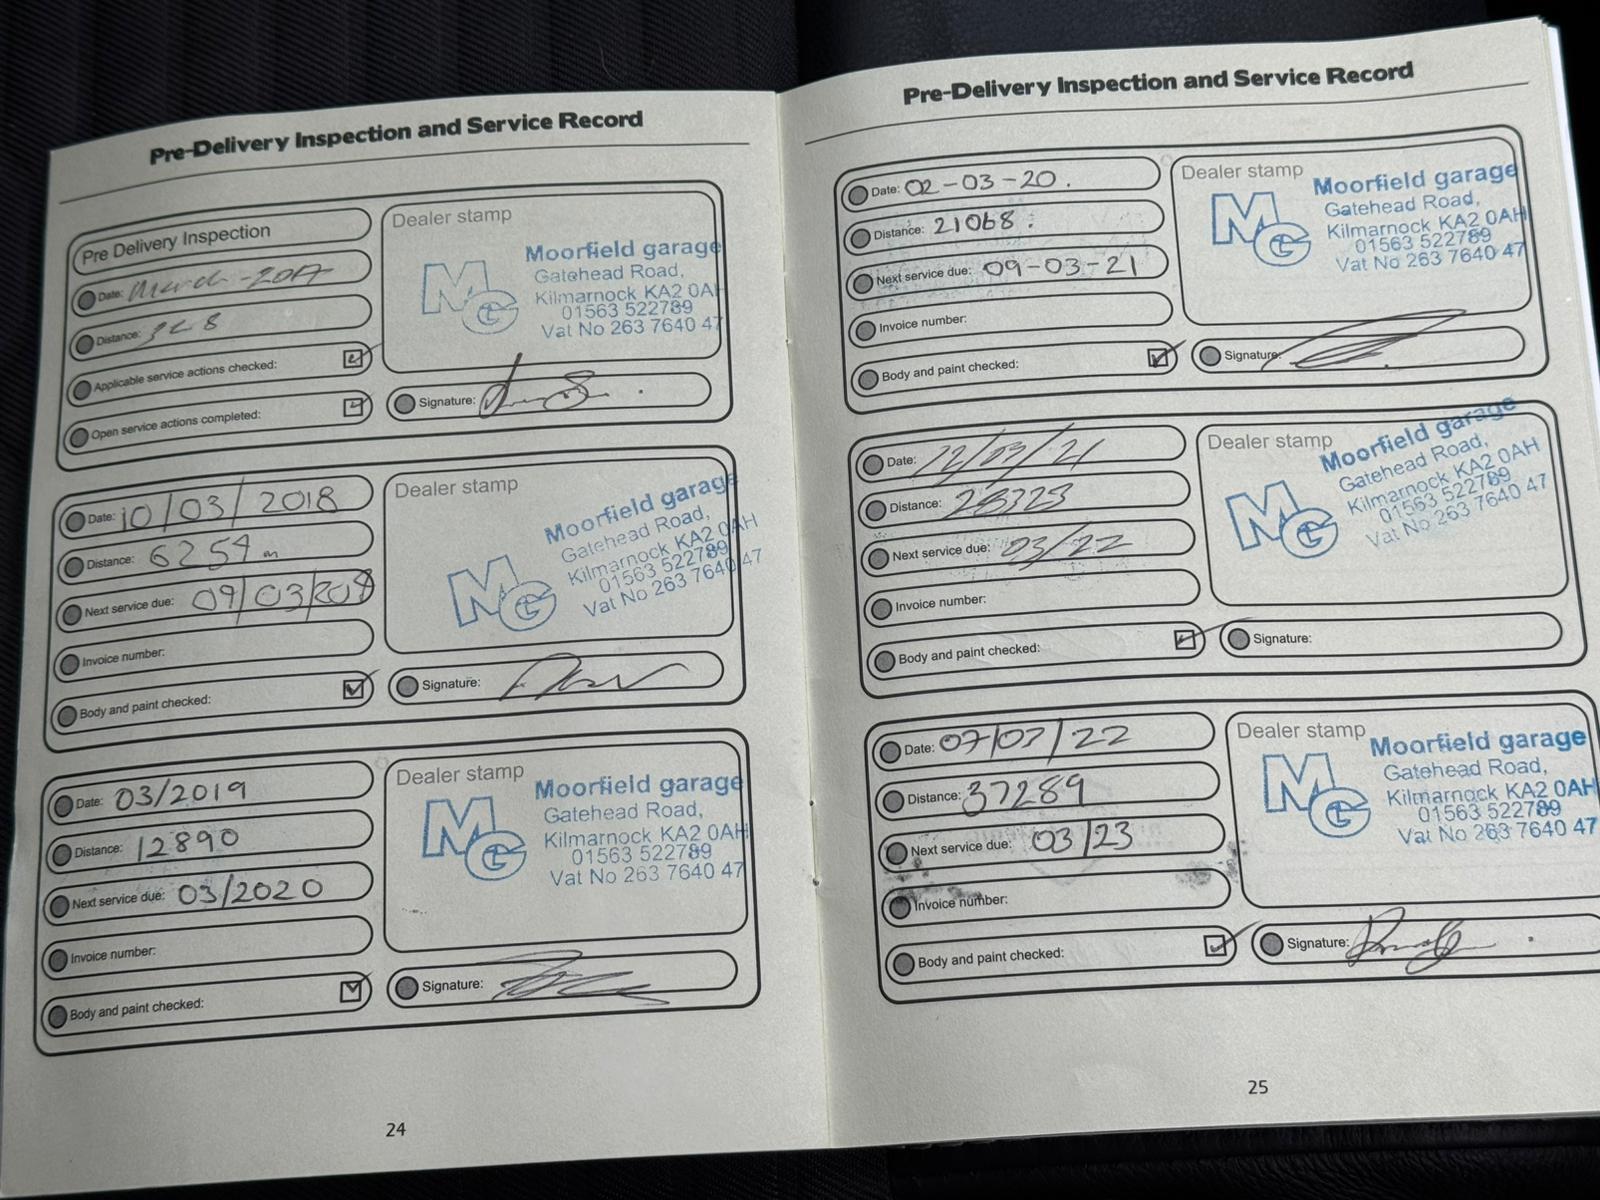 Pre-Delivery Inspection and Service Record
Pre Delivery Inspection
Date: March - 2017
Distance: 328
Applicable service actions checked:
Open service actions completed:
Dealer stamp
MG
Moorfield garage
Gatehead Road,
Kilmarnock KA2 0AH
01563 522789
Vat No 263 7640 47
Signature:
Date: 10/03/2018
Distance: 6254 m
Next service due: 09/03/
Invoice number:
Body and paint checked:
Dealer stamp
MG
Moorfield garage
Gatehead Road,
Kilmarnock KA2 0AH
01563 522789
Vat No 263 7640 47
Signature:
Date: 03/2019
Distance: 12890
Next service due: 03/2020
Invoice number:
Body and paint checked:
Dealer stamp
MG
Moorfield garage
Gatehead Road,
Kilmarnock KA2 0AH
01563 522789
Vat No 263 7640 47
Signature:
24
Pre-Delivery Inspection and Service Record
Date: 02-03-20.
Distance: 21068.
Next service due: 09-03-21
Invoice number:
Body and paint checked:
Dealer stamp
MG
Moorfield garage
Gatehead Road,
Kilmarnock KA2 0AH
01563 522789
Vat No 263 7640 47
Signature:
Date: 12/03/21
Distance: 28323
Next service due: 03/22
Invoice number:
Body and paint checked:
Dealer stamp
MG
Moorfield garage
Gatehead Road,
Kilmarnock KA2 0AH
01563 522789
Vat No 263 7640 47
Signature:
Date: 07/03/22
Distance: 37289
Next service due: 03/23
Invoice number:
Body and paint checked:
Dealer stamp
MG
Moorfield garage
Gatehead Road,
Kilmarnock KA2 0AH
01563 522789
Vat No 263 7640 47
Signature:
25